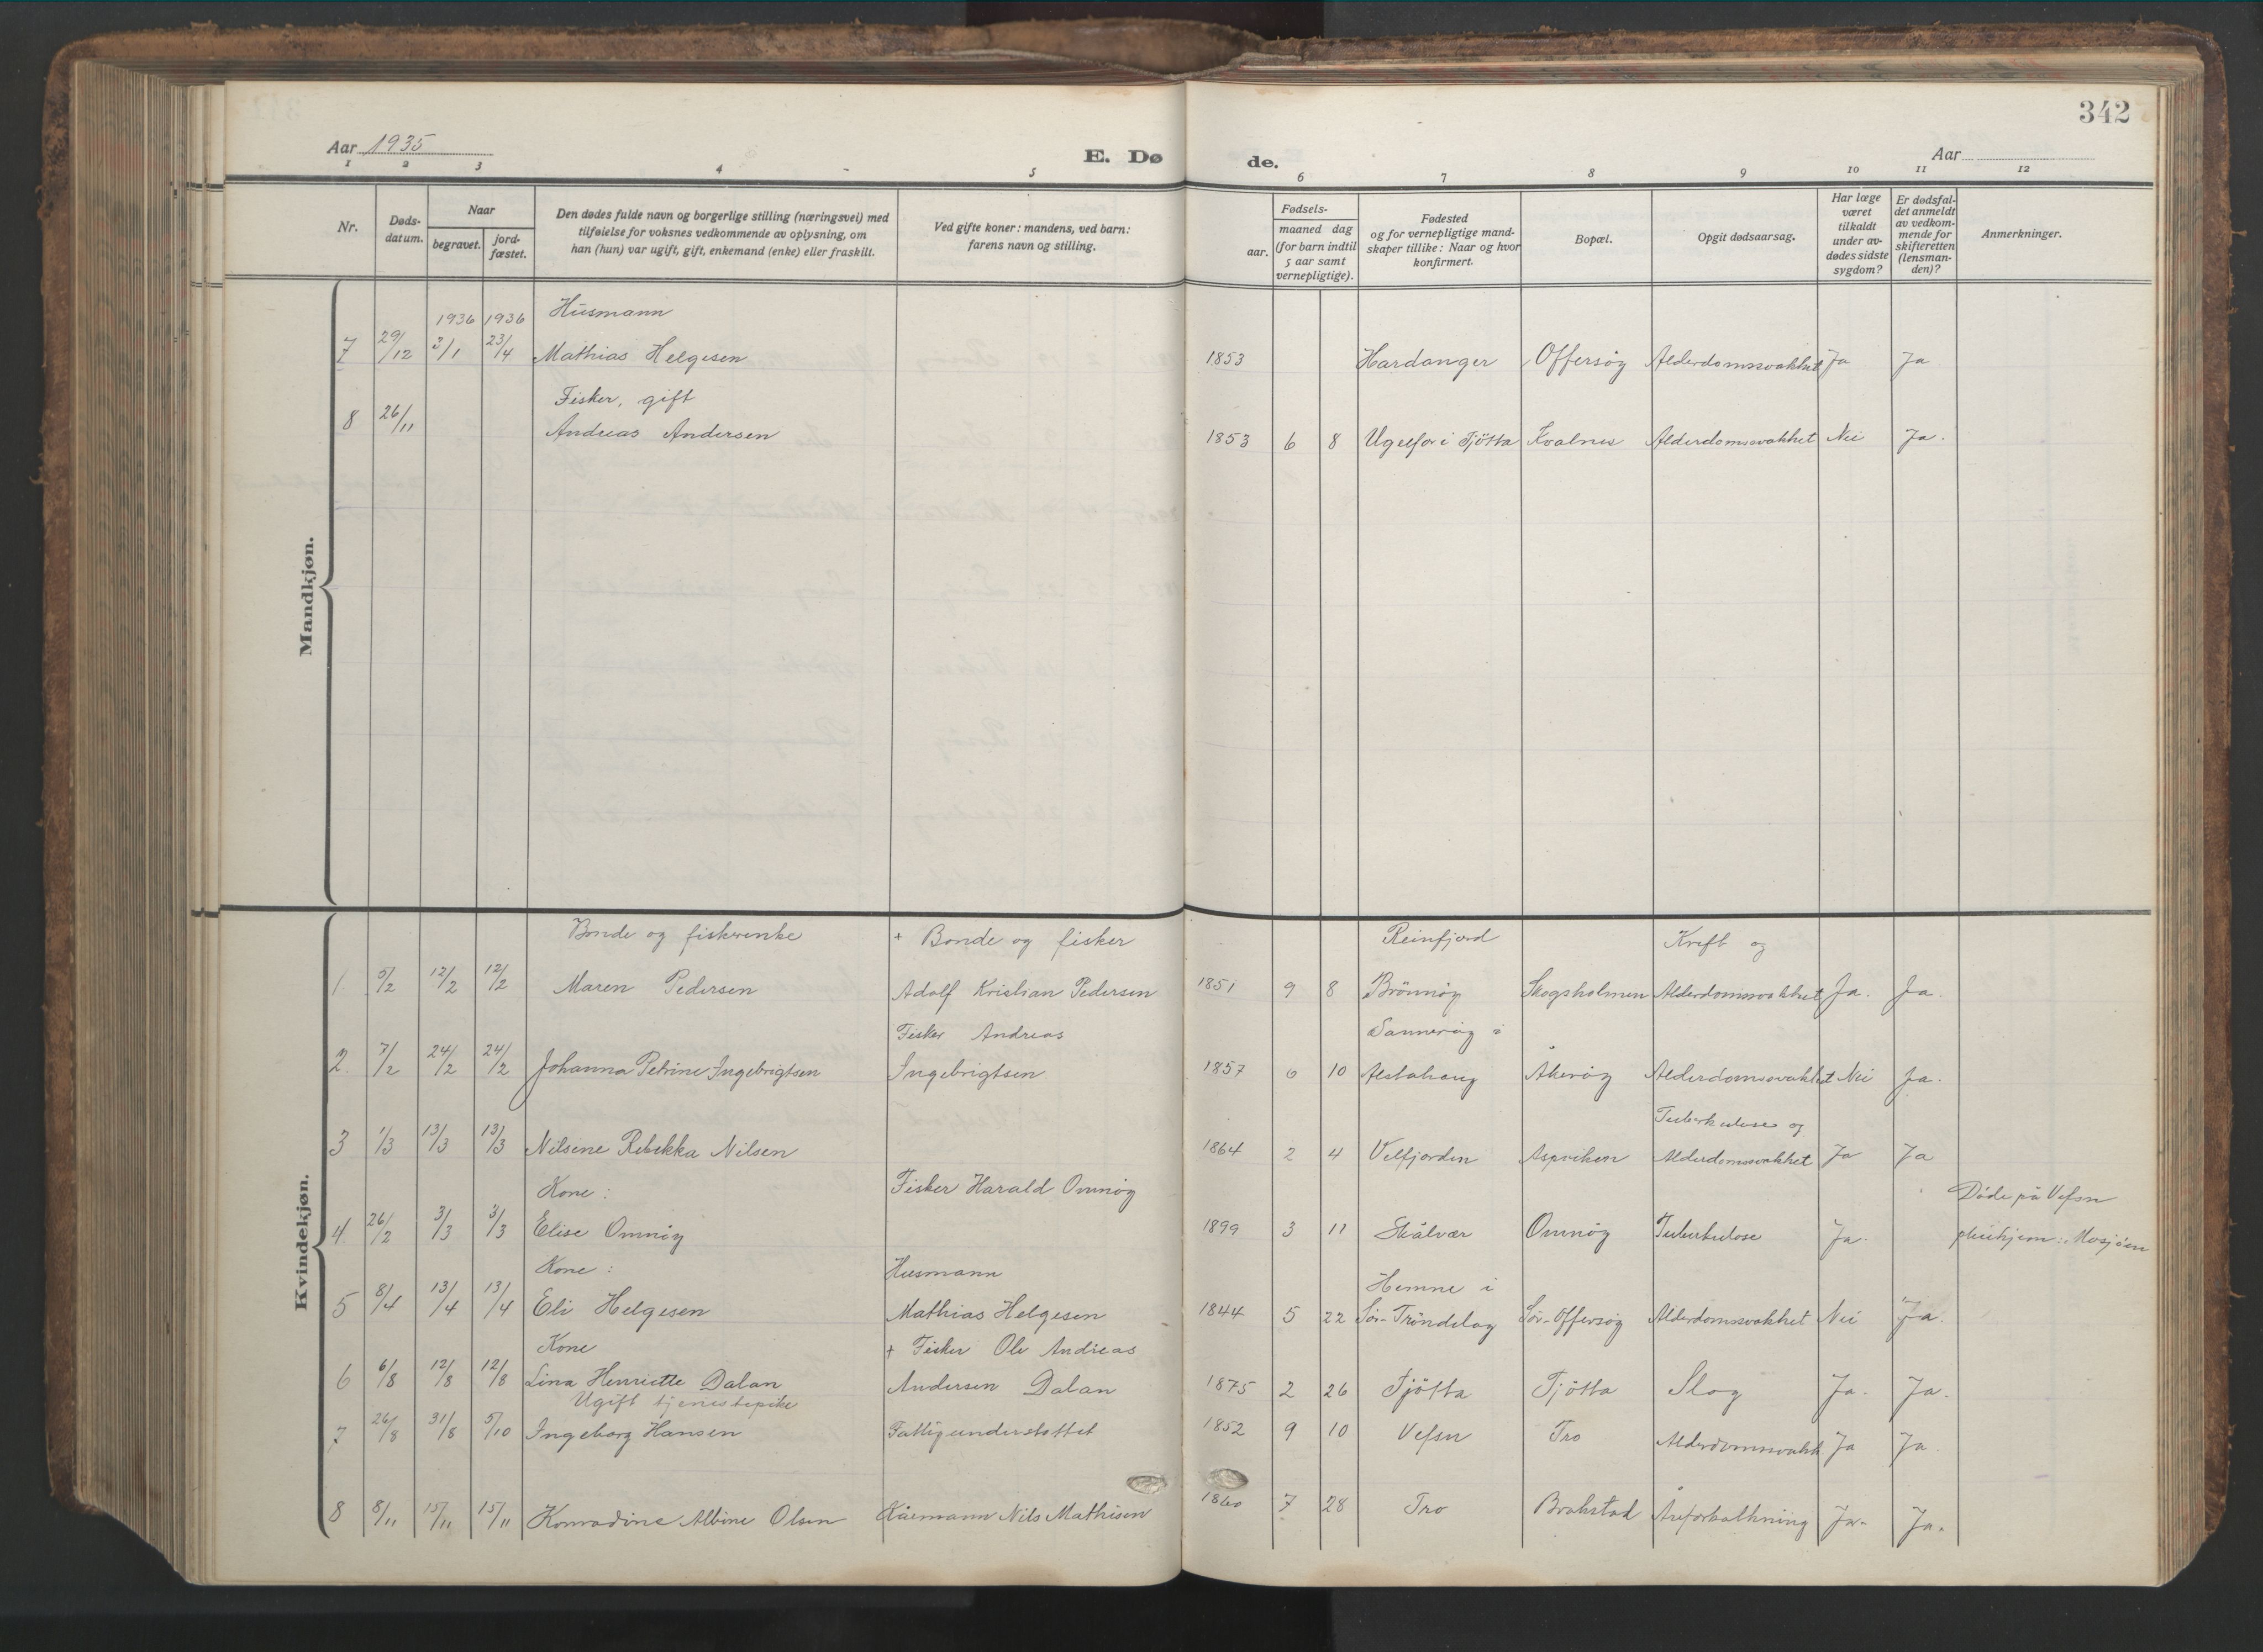 342
Aar 1935
E. Dø
de.
Aar
1 2 3 4 5 6 7 8 9 10 11 12
Nr.
Døds-
datum.
Naar
begravet.
jord-
fæstet.
Den dødes fulde navn og borgerlige stilling (næringsvei) med
tilføielse for voksnes vedkommende av oplysning, om
han (hun) var ugift, gift, enkemand (enke) eller fraskilt.
Ved gifte koner: mandens, ved barn:
farens navn og stilling.
Fødsels-
aar.
maaned dag
(for barn indtil
5 aar samt
vernepligtige).
Fødested
og for vernepligtige mand-
skaper tillike: Naar og hvor
konfirmert.
Bopæl.
Opgit dødsaarsag.
Har læge
været
tilkaldt
under av-
dødes sidste
sygdom?
Er dødsfal-
det anmeldt
av vedkom-
mende for
skifteretten
(lensman-
den)?
Anmerkninger.
Mandkjøn.
1936 1936 Husmann
7 29/12 3/1 23/4 Mathias Helgesen 1853 Hardanger Offersøy Alderdomssvakhet Ja Ja
Fisker, gift
8 26/11 Andreas Andersen 1853 6 8 Ugelfor i Tjötta Kvalnes Alderdomssvakhet Nei Ja.
Kvindekjøn.
Bonde og fiskerenke + Bonde og fisker Reinfjord Kreft og
1 5/2 12/2 12/2 Maren Pedersen Adolf Kristian Pedersen 1851 9 8 Brönnöy Skogsholmen Alderdomssvakhet Ja. Ja.
Fisker Andreas Sannesöy i
2. 7/2 24/2 24/2 Johanna Petrine Ingebrigtsen Ingebrigtsen 1857 6 10 Alstahaug Åkerøy Alderdomssvakhet Nei Ja.
Tuberkulose og
3 1/3 13/3 13/3 Nilsine Rebekka Nilsen 1864 2 4 Velfjorden Aspviken Alderdomssvakhet Ja Ja
Kone: Fisker Harald Omnöy Döde på Vefsn
4. 26/2 3/3 3/3 Elise Omnöy 1899 3 11 Skålvær Omnöy Tuberkulose Ja. pleiehjem: Mosjöen
Kone: Husmann Hemne i
5 8/4 13/4 13/4 Eli Helgesen Mathias Helgesen 1844 5 22 Sör-Tröndelag Sör-Offersöy Alderdomssvakhet Nei Ja.
Kone + Fisker Ole Andreas
6 6/8 12/8 12/8 Lina Henriette Dalan Andersen Dalan 1875 2 26 Tjötta Tjötta Slag Ja. Ja.
Ugift tjenestepike
7 26/8 31/8 5/10 Ingeborg Hansen Fattigunderstöttet 1852 9 10 Vefsn Tro Alderdomssvakh. Ja Ja.
8 8/11 15/11 15/11 Konradine Albine Olsen Kårmann Nils Mathisen 1860 7 28 Tro Brakstad Åreforkalkning Ja. Ja.